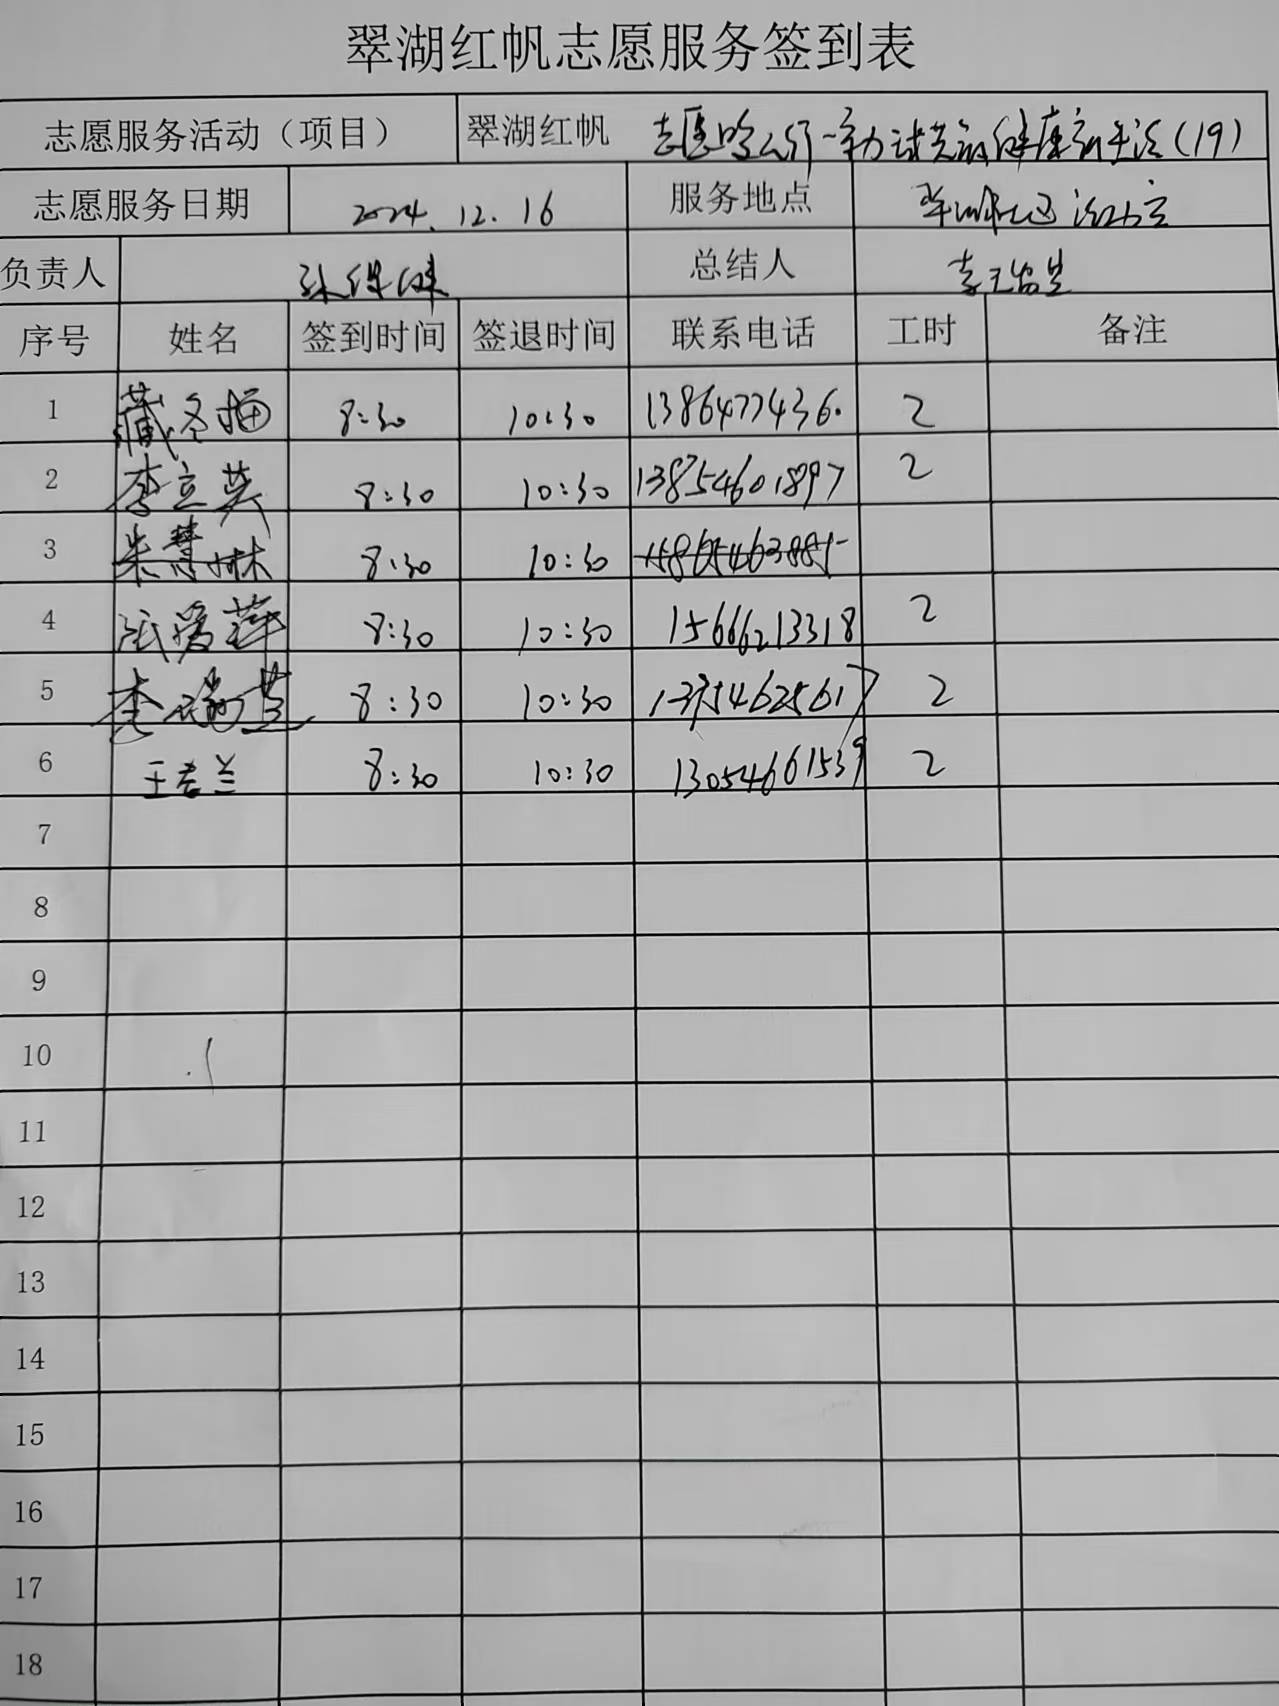 翠湖红帆志愿服务签到表
志愿服务活动（项目） 翠湖红帆 志愿 健康 (19)
志愿服务日期 2024.12.16 服务地点
负责人 总结人
序号 姓名 签到时间 签退时间 联系电话 工时 备注
1 8:30 10:30 1386477436. 2
2 李立英 8:30 10:30 13854601897 2
3 朱慧琳 8:30 10:30
4 张爱萍 8:30 10:30 15666213318 2
5 李瑞兰 8:30 10:30 2
6 王吉兰 8:30 10:30 13054661539 2
7
8
9
10
11
12
13
14
15
16
17
18